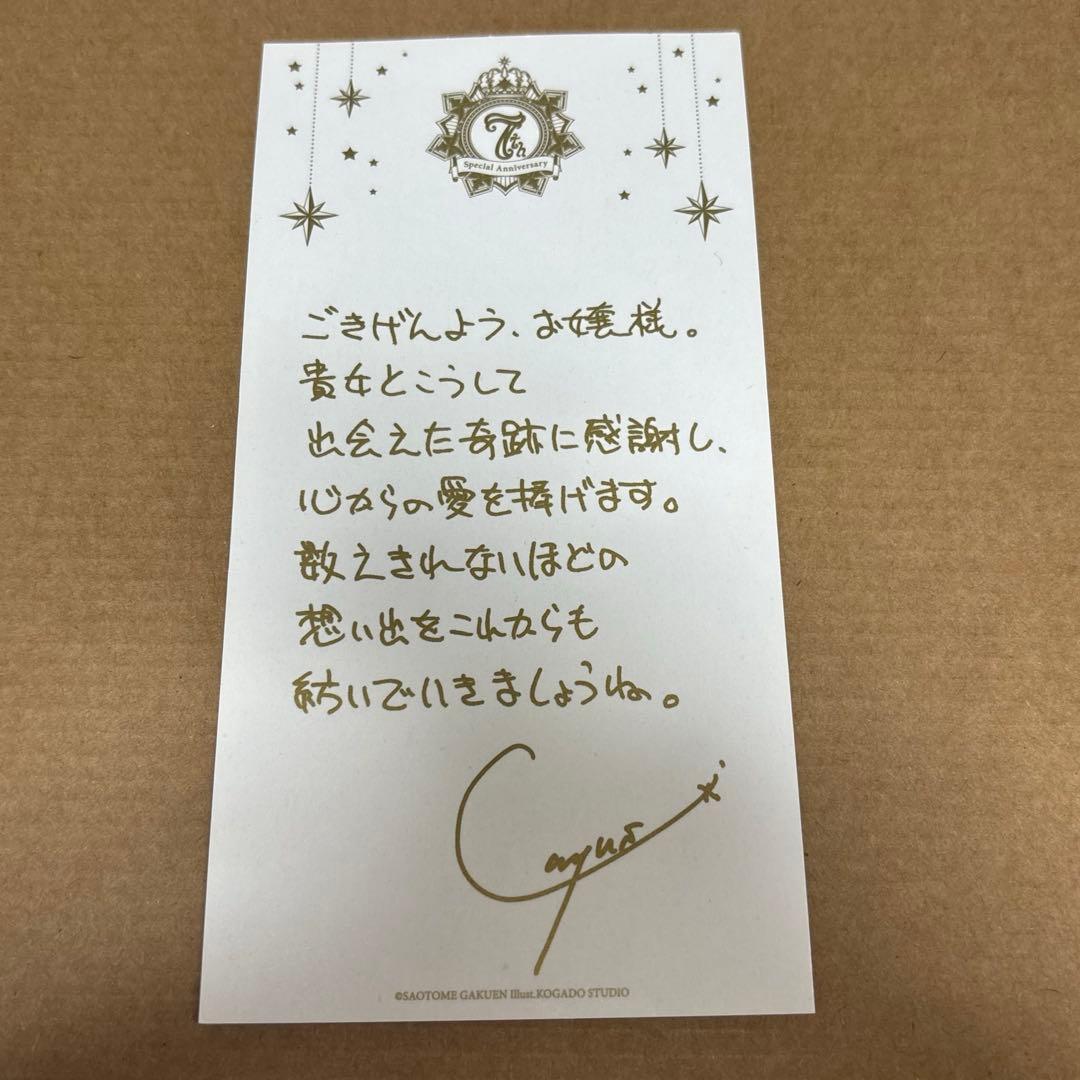 7th
Special Anniversary
ごきげんよう、お嬢様。
貴女とこうして
出会えた奇跡に感謝し、
心からの愛を捧げます。
数えきれないほどの
想い出をこれからも
紡いでいきましょうね。
Camus
©SAOTOME GAKUEN Illust.KOGADO STUDIO